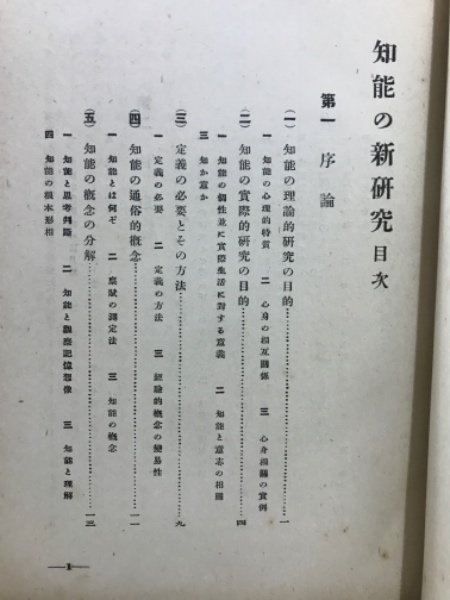 知能の新研究 目次
第一 序論
(一) 知能の理論的研究の目的……一
一 知能の心理的特質 二 心身の相互關係 三 心身相關の實例
(二) 知能の實際的研究の目的……四
一 知能の個性並に實際生活に對する意義 二 知能と意志の相關
三 知か意か
(三) 定義の必要とその方法……九
一 定義の必要 二 定義の方法 三 經驗的概念の變易性
(四) 知能の通俗的概念……一一
一 知能とは何ぞ 二 稟賦の測定法 三 知能の概念
(五) 知能の概念の分解……一三
一 知能と思考判斷 二 知能と觀察記憶想像 三 知能と理解
四 知能の根本形相
—1—